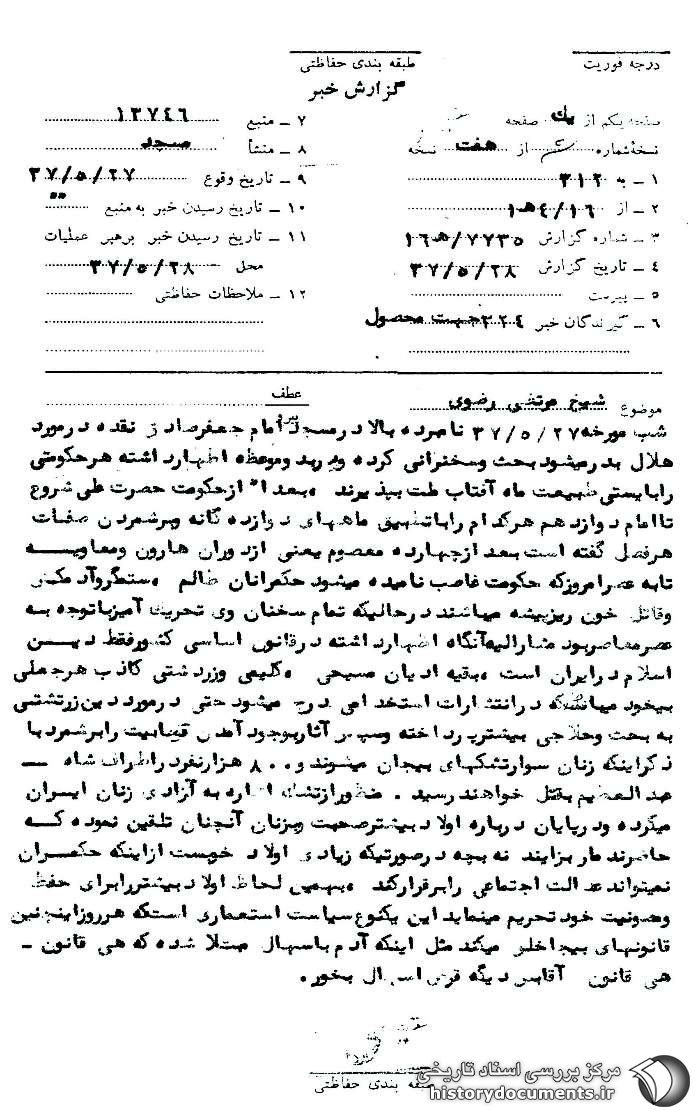 درجه فوریت
طبقه بندی حفاظتی
گزارش خبر
صفحه یکم از یک صفحه
نسخه شماره از هفت نسخه
۱ ـ به ۳۱۲
۲ ـ از ۴/۱۶هـ۱
۳ ـ شماره گزارش ۷۷۳۵/هـ۱۶
۴ ـ تاریخ گزارش ۳۷/۵/۲۸
۵ ـ پیوست
۶ ـ گیرندگان خبر ۳۲۴ جهت محصول
۷ ـ منبع ۱۳۷۴۶
۸ ـ منشأ مسجد
۹ ـ تاریخ وقوع ۳۷/۵/۲۷
۱۰ ـ تاریخ رسیدن خبر به منبع
۱۱ ـ تاریخ رسیدن خبر برهبر عملیات
محل ۳۷/۵/۲۸
۱۲ ـ ملاحظات حفاظتی
موضوع شیخ مرتضی رضوی
عطف
شب مورخه ۳۷/۵/۲۷ نامبرده بالا در مسجد امام جعفرصادق نقده در مورد
هلال بدر میشود بحث و سخنرانی کرده و پند و موعظه اظهار داشته هر حکومتی
را بایستی طبیعت ماه آفتاب ملت بپذیرند بعد از حکومت حضرت علی شروع
تا امام دوازدهم هر کدام را با تطبیق ماههای دوازده گانه و برشمردن صفات
هر فصلی گفته است بعد از چهارده معصوم یعنی از دوران هارون و معاویه
تا به عصر امروز که حکومت غاصب نامیده میشود حکمرانان ظالم ستمگر و آدمکش
و قاتل خون ریز پیشه میباشند در حالیکه تمام سخنان وی تحریک آمیز با توجه به
عصر معاصر بود مشارالیه آنگاه اظهار داشته در قانون اساسی کشور فقط دین
اسلام در ایران است بقیه ادیان مسیحی کلیمی و زردشتی کاذب هر جعلی
بیخود میباشد که در انتشارات استخدامی درج میشود حتی در مورد دین زرتشتی
به بحث و حلاجی بیشتر پرداخته و سپس آثار بوجود آمدن را برشمرد با
ذکر اینکه زنان سوار تشکهای بیجان میشوند و ۸۰۰ هزار نفر در اطراف شاه ـ
عبدالعظیم بقتل خواهند رسید . منظور از تشک اشاره به آزادی زنان ایران
میکرده و در پایان درباره اولاد بیشتر صحبت و بزنان آنچنان تلقین نموده که
حاضرند مار بزایند نه بچه در صورتیکه زیادی اولاد خوبست از اینکه حکمران
نمیتواند عدالت اجتماعی را برقرار کند بهمین لحاظ اولاد بیشتر را برای حفظ
و مصونیت خود تحریم مینماید این یکنوع سیاست استعماری است که هر روز اینچنین
قانونهای بیجا خلق میکند مثل اینکه آدم باسهال مبتلا شده که هی قانون ـ
هی قانون آقا بس دیگه قرص اسهال بخور.
طبقه بندی حفاظتی
مرکز بررسی اسناد تاریخی
historydocuments.ir